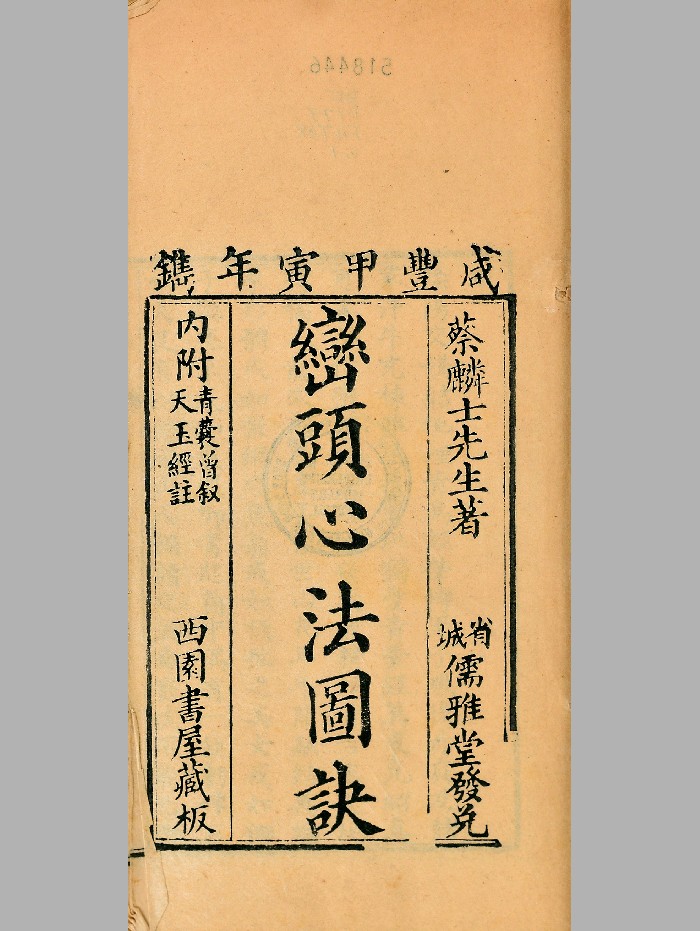 咸豐甲寅年鐫
蔡麟士先生著
省城儒雅堂發兌
巒頭心法圖訣
內附青囊曾叙天玉經註
西園書屋藏板
518446